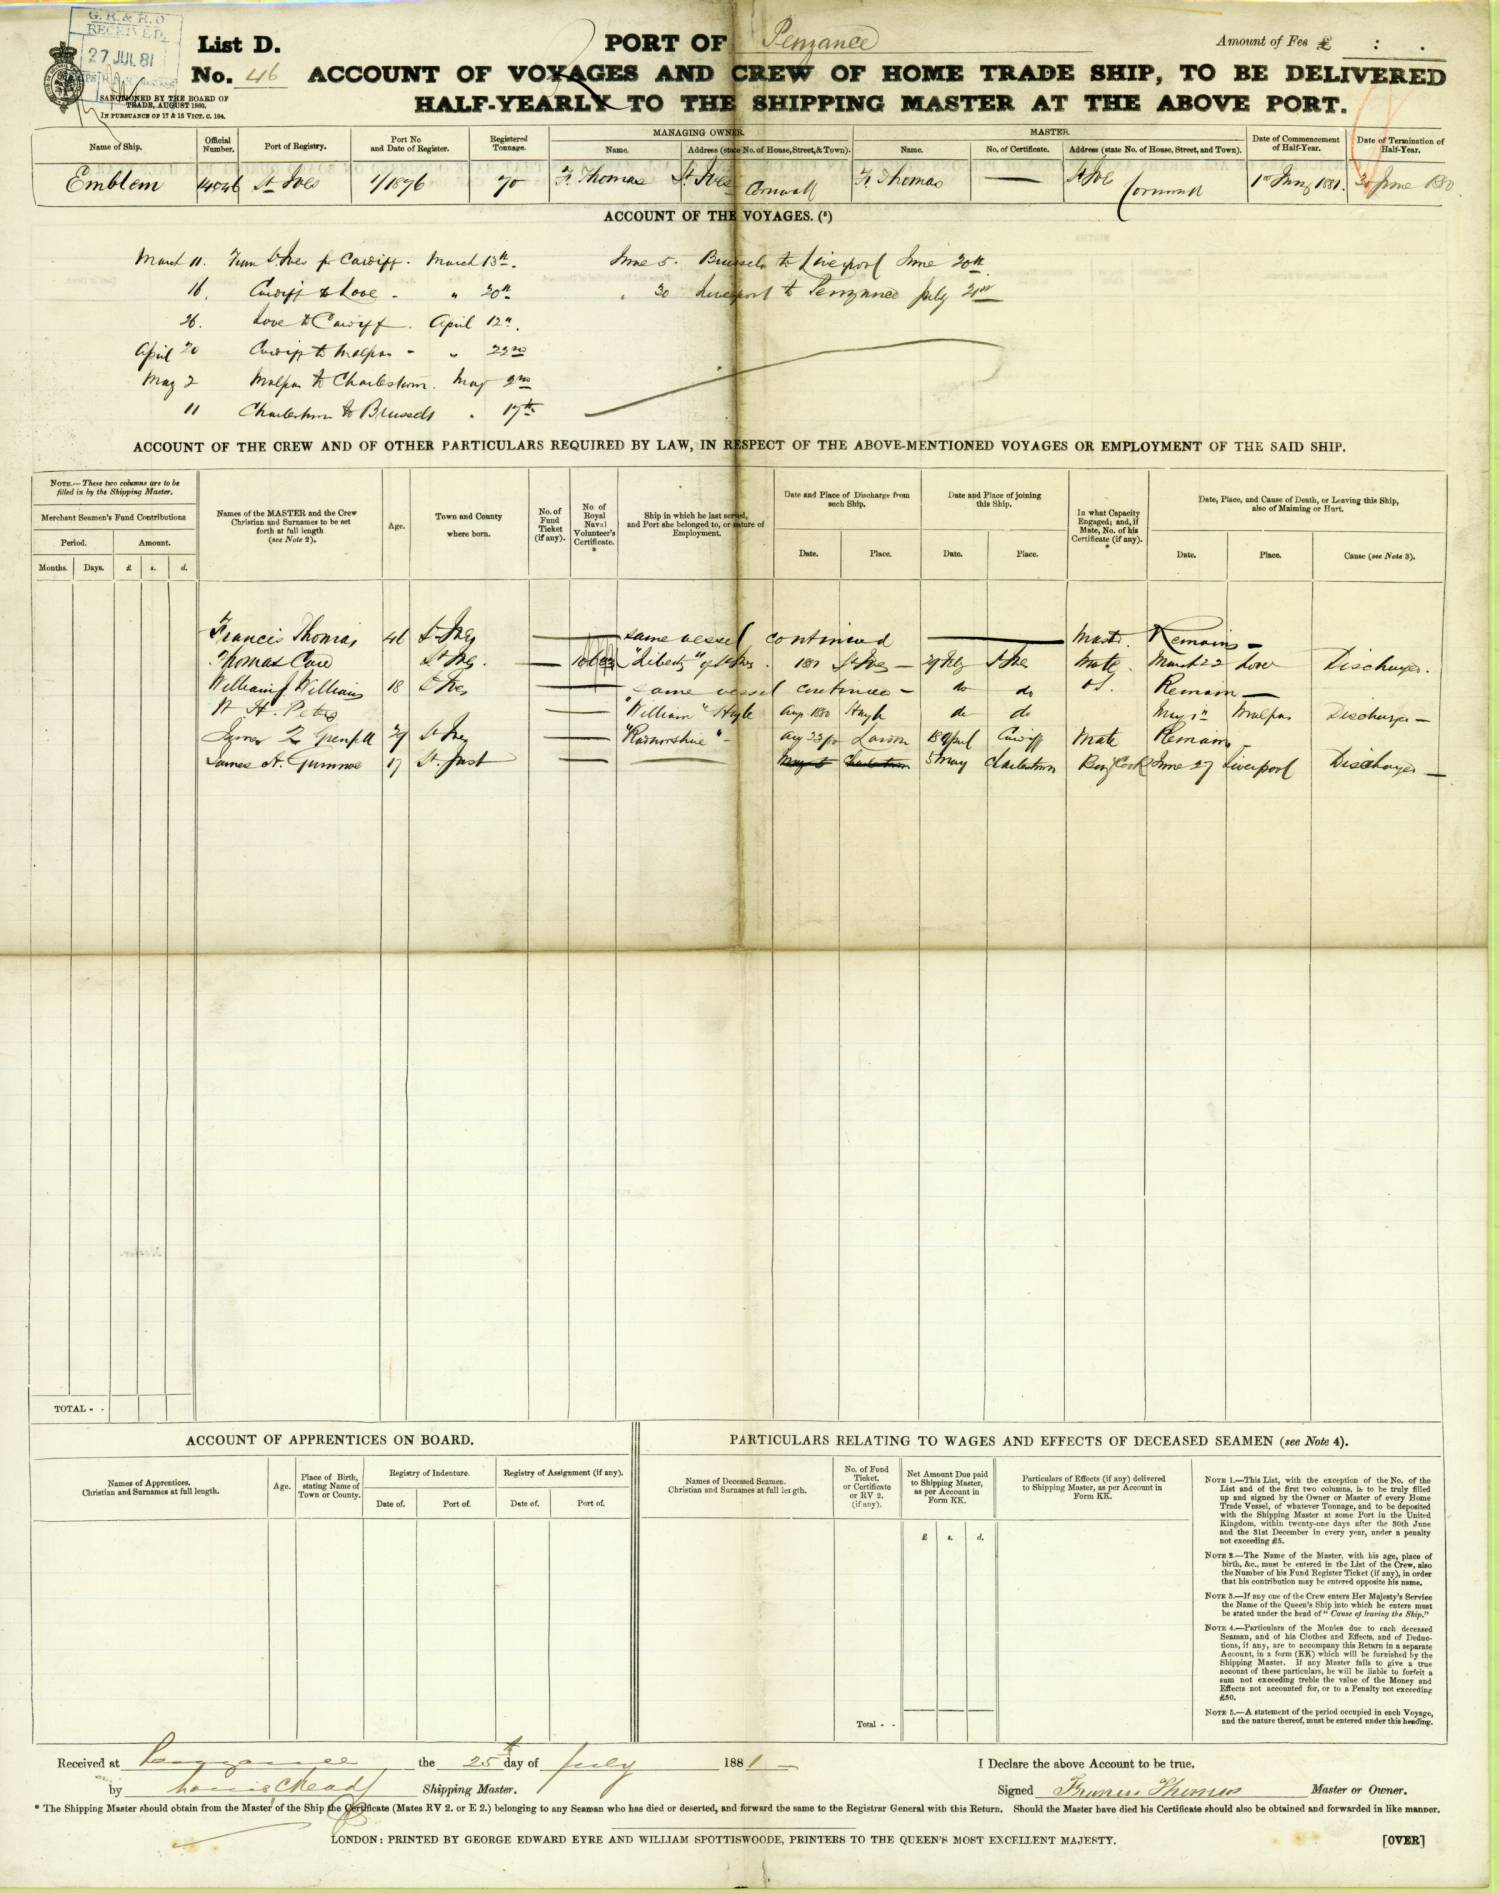 G. R. & R. O
RECEIVED,
27 JUL 81
List D.
No. 46
SANCTIONED BY THE BOARD OF
TRADE, AUGUST 1860.
IN PURSUANCE OF 17 & 18 VICT. C. 104.
PORT OF Penzance
Amount of Fee £ : .
ACCOUNT OF VOYAGES AND CREW OF HOME TRADE SHIP, TO BE DELIVERED
HALF-YEARLY TO THE SHIPPING MASTER AT THE ABOVE PORT.
Name of Ship. Official Number. Port of Registry. Port No and Date of Register. Registered Tonnage. MANAGING OWNER. Name. Address (state No. of House, Street, & Town). MASTER. Name. No. of Certificate. Address (state No. of House, Street, and Town). Date of Commencement of Half-Year. Date of Termination of Half-Year.
Emblem St Ives 1/1876 70 F. Thomas St Ives Cornwall F. Thomas — St Ives Cornwall 1st Jany 1881. 30 June
ACCOUNT OF THE VOYAGES. (5)
March 11. From St. Ives for Cardiff. March 13th.
16. Cardiff to Looe - " 20th
26. Looe to Cardiff. April 12th.
April 20 Cardiff to Malpas - " 22nd
May 2 Malpas to Charlestown. May 2nd
11 Charlestown to Brussels " 17th
June 5. Brussels to Liverpool June 20th.
" 30 Liverpool to Penzance July 21st
ACCOUNT OF THE CREW AND OF OTHER PARTICULARS REQUIRED BY LAW, IN RESPECT OF THE ABOVE-MENTIONED VOYAGES OR EMPLOYMENT OF THE SAID SHIP.
NOTE.—These two columns are to be filled in by the Shipping Master.
Merchant Seamen's Fund Contributions
Period. Amount.
Months. Days. £ s. d.
Names of the MASTER and the Crew Christian and Surnames to be set forth at full length (see Note 2).
Age.
Town and County where born.
No. of Fund Ticket (if any).
No of Royal Naval Volunteer's Certificate. *
Ship in which he last served, and Port she belonged to, or nature of Employment.
Date and Place of Discharge from such Ship. Date. Place.
Date and Place of joining this Ship. Date. Place.
In what Capacity Engaged; and, if Mate, No. of his Certificate (if any). *
Date, Place, and Cause of Death, or Leaving this Ship, also of Maiming or Hurt. Date. Place. Cause (see Note 3).
Francis Thomas 46 St Ives — same vessel continued — Mastr. Remains —
Thomas St Ives. — "Liberty" of St Ives. St Ives — St Ives Mate March 22 Looe Discharges.
William J Williams 18 St Ives — same vessel continues - do do Remain —
W. H. Peters — "William" Hayle Aug. 1880 Hayle do do Malpas Discharges —
James Grenfell 29 St Ives — "Radnorshire" - 18 April Cardiff Mate Remains
James H. 17 St. Just — 5 May Charlestown Boy Cook June 27 Liverpool Discharges —
TOTAL - -
ACCOUNT OF APPRENTICES ON BOARD.
Names of Apprentices. Christian and Surnames at full length. Age. Place of Birth, stating Name of Town or County. Registry of Indenture. Date of. Port of. Registry of Assignment (if any). Date of. Port of.
PARTICULARS RELATING TO WAGES AND EFFECTS OF DECEASED SEAMEN (see Note 4).
Names of Deceased Seamen. Christian and Surnames at full length. No. of Fund Ticket, or Certificate or RV 2. (if any). Net Amount Due paid to Shipping Master, as per Account in Form KK. Particulars of Effects (if any) delivered to Shipping Master, as per Account in Form KK.
£ s. d.
Total - -
NOTE 1.—This List, with the exception of the No. of the
List and of the first two columns, is to be truly filled
up and signed by the Owner or Master of every Home
Trade Vessel, of whatever Tonnage, and to be deposited
with the Shipping Master at some Port in the United
Kingdom, within twenty-one days after the 30th June
and the 31st December in every year, under a penalty
not exceeding £5.
NOTE 2.—The Name of the Master, with his age, place of
birth, &c., must be entered in the List of the Crew, also
the Number of his Fund Register Ticket (if any), in order
that his contribution may be entered opposite his name.
NOTE 3.—If any one of the Crew enters Her Majesty's Service
the Name of the Queen's Ship into which he enters must
be stated under the head of "Cause of leaving the Ship."
NOTE 4.—Particulars of the Monies due to each deceased
Seaman, and of his Clothes and Effects, and of Deduc-
tions, if any, are to accompany this Return in a separate
Account, in a form (KK) which will be furnished by the
Shipping Master. If any Master fails to give a true
account of these particulars, he will be liable to forfeit a
sum not exceeding treble the value of the Money and
Effects not accounted for, or to a Penalty not exceeding
£50.
NOTE 5.—A statement of the period occupied in each Voyage,
and the nature thereof, must be entered under this heading.
Received at Penzance the 25th day of July 1881 —
by Shipping Master.
I Declare the above Account to be true.
Signed Francis Thomas Master or Owner.
* The Shipping Master should obtain from the Master of the Ship the Certificate (Mates RV 2. or E 2.) belonging to any Seaman who has died or deserted, and forward the same to the Registrar General with this Return. Should the Master have died his Certificate should also be obtained and forwarded in like manner.
LONDON: PRINTED BY GEORGE EDWARD EYRE AND WILLIAM SPOTTISWOODE, PRINTERS TO THE QUEEN'S MOST EXCELLENT MAJESTY.
[OVER]